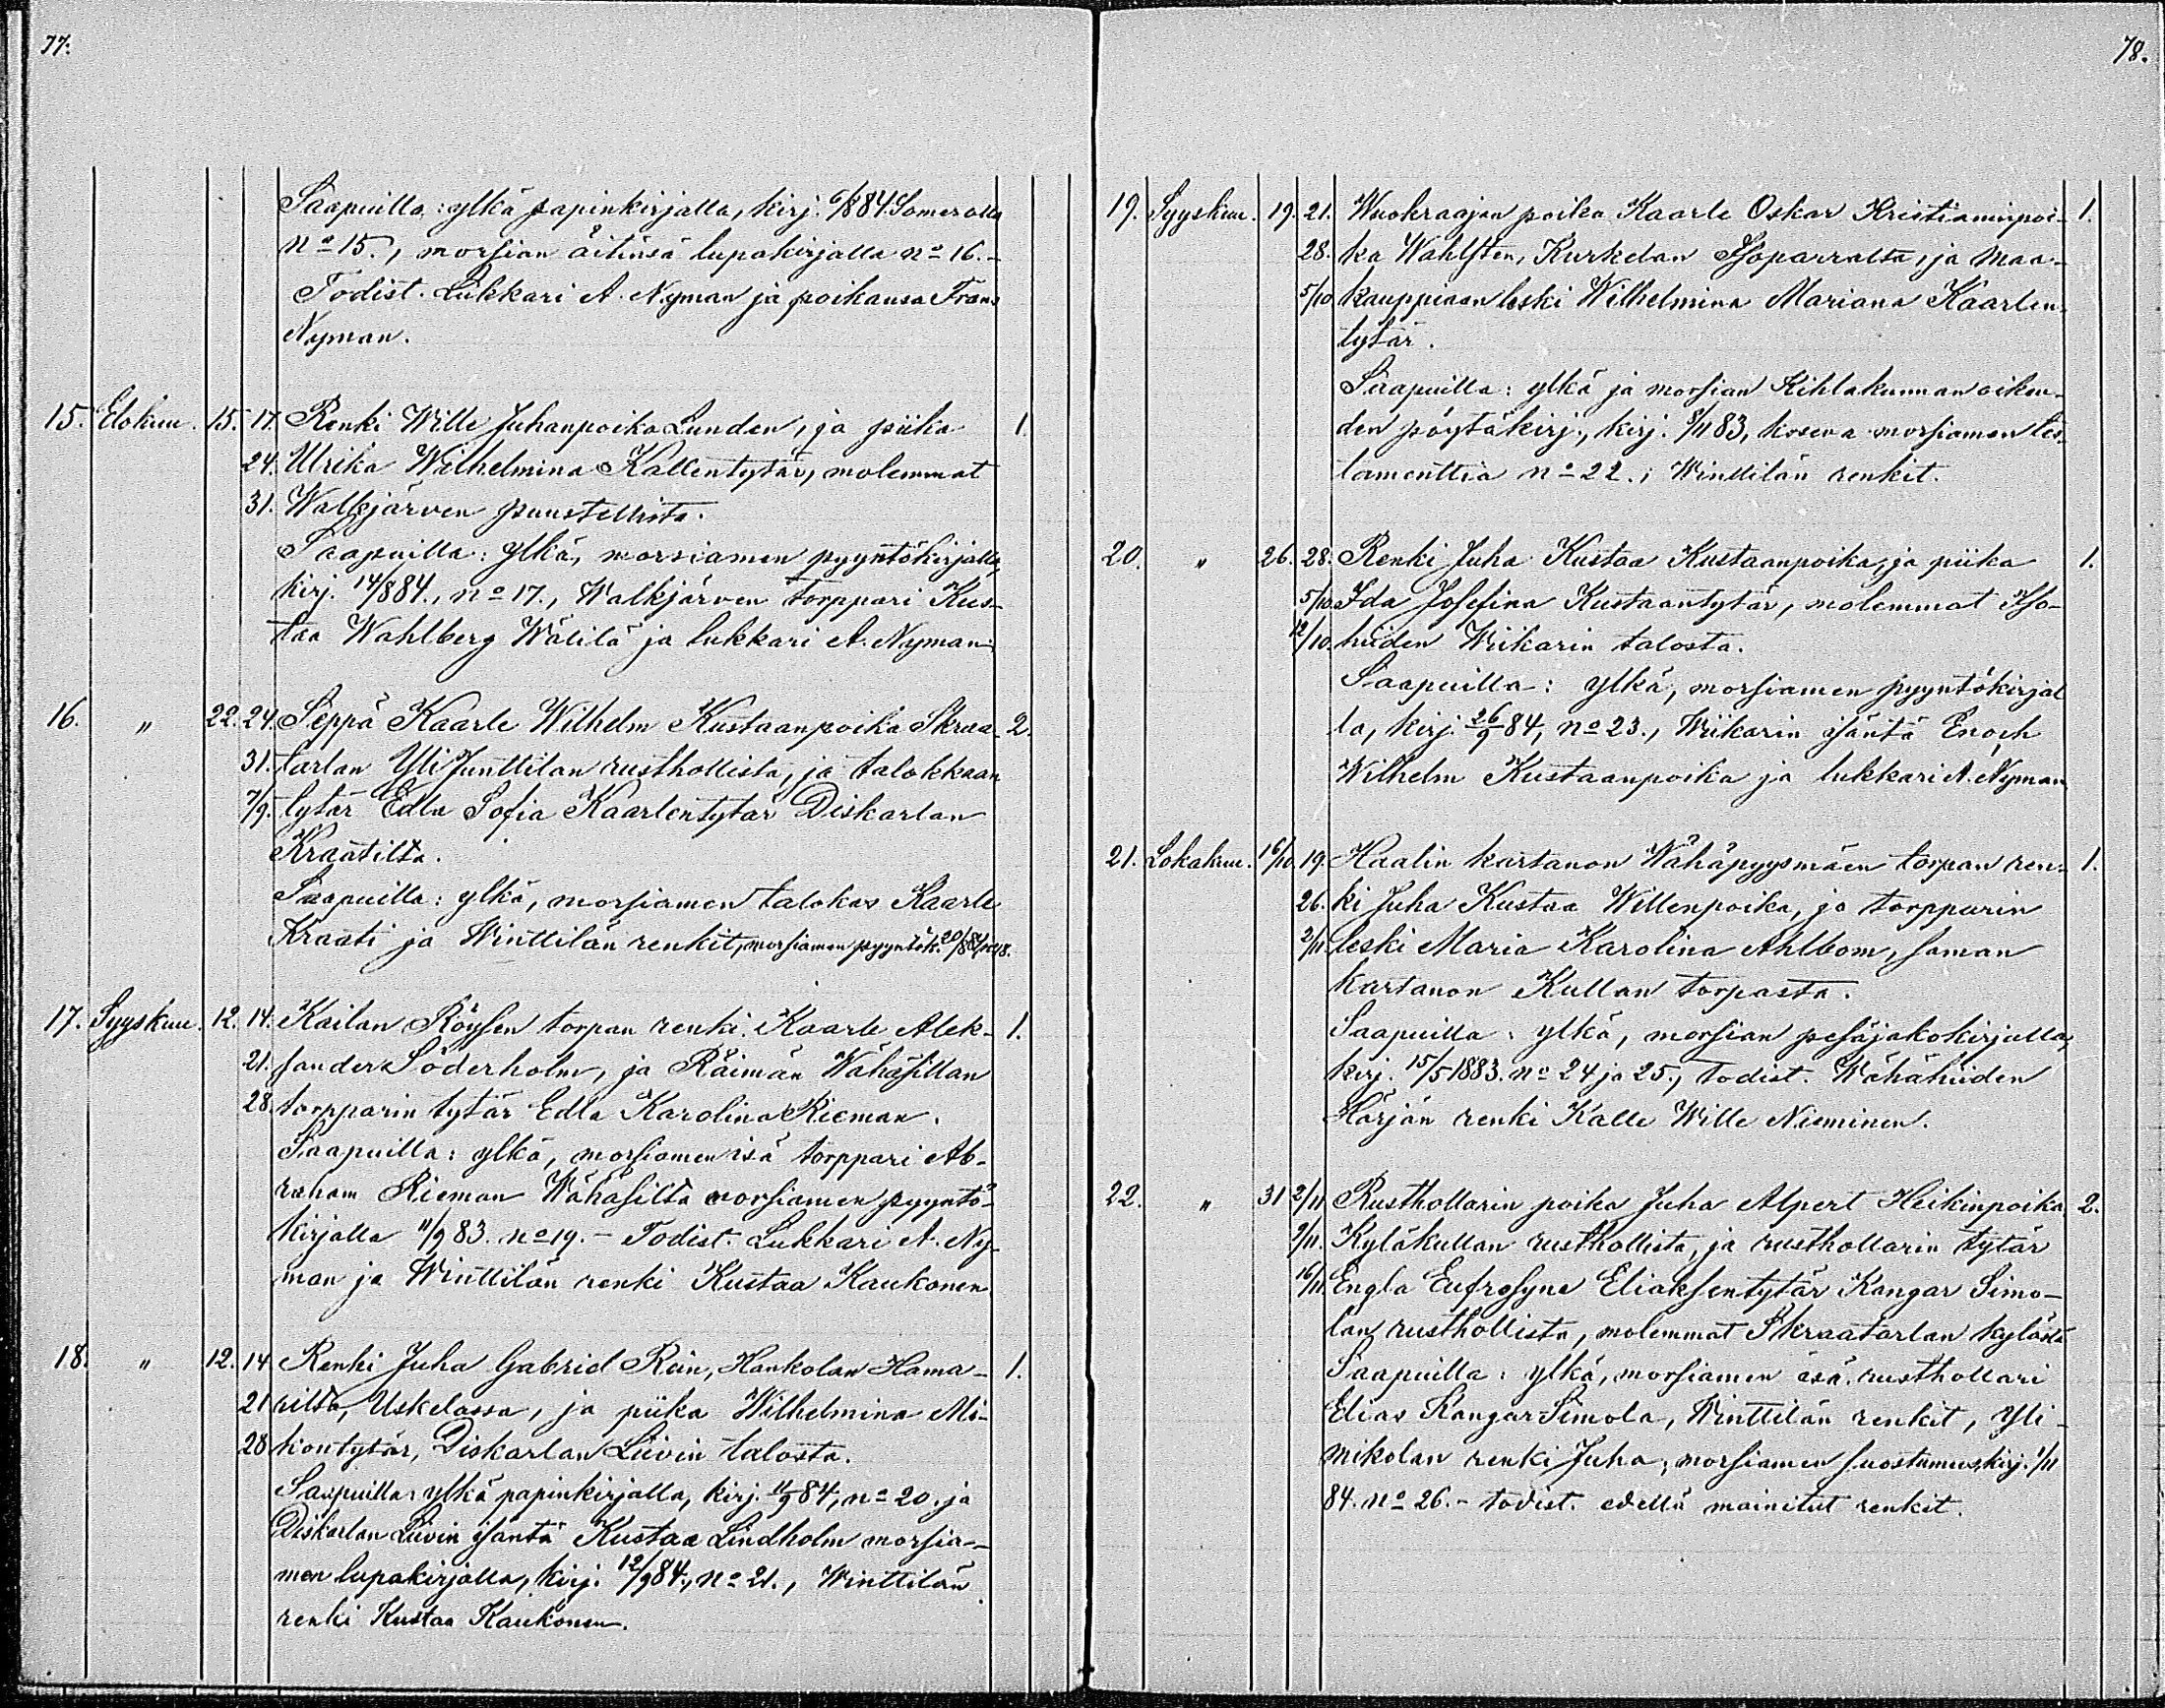 77.
Saapuilla: ylkä papinkirjalla, kirj. 6/8 84 Somerolla
No 15., morsian äitinsä lupakirjalla No 16. -
Todist. Lukkari A. Nyman ja poikansa Frans
Nyman.
15. Elokuu. 15. 17. Renki Wille Juhanpoika Lunden, ja piika 1.
24. Ulrika Wilhelmina Kallentytär, molemmat
31. Walkjärven puustellista.
Saapuilla: ylkä, morsiamen pyyntökirjalla,
kirj. 14/8 84., No 17., Walkjärven torppari Kus-
taa Wahlberg Wälilä ja lukkari A. Nyman.
16. " 22. 24. Seppä Kaarle Wilhelm Kustaanpoika Skraa- 2.
31. tarlan Yli Junttilan rusthollista, ja talokkaan
7/9. tytär Edla Sofia Kaarlentytär Diskarlan
Kraatilta.
Saapuilla: ylkä, morsiamen talokas Kaarle
Kraati ja Winttilän renkit, morsiamen pyyntök. 20/8 84, No 18.
17. Syyskuu. 12. 14. Kailan Röyssen torpan renki Kaarle Alek- 1.
21. sander Söderholm, ja Räimän Wähäsillan
28. torpparin tytär Edla Karolina Rieman.
Saapuilla: ylkä, morsiamen isä torppari Ab-
raham Rieman Wähäsilta morsiamen pyyntö-
kirjalla 11/9 83. No 19. - Todist. Lukkari A. Ny-
man ja Winttilän renki Kustaa Kaukonen
18. " 12. 14 Renki Juha Gabriel Rein, Hankolan Hama- 1.
21 rilta, Uskelassa, ja piika Wilhelmina Mi-
28 kontytär, Diskarlan Liivin talosta.
Saapuilla: ylkä papinkirjalla, kirj. 11/9 84, No 20. ja
Diskarlan Liivin isäntä Kustaa Lindholm morsia-
men lupakirjalla, kirj. 12/9 84., No 21., Winttilän
renki Kustaa Kaukonen.
78.
19. Syyskuu. 19. 21. Wuokraajan poika Kaarle Oskar Kristianinpoi- 1.
28. ka Wahlsten, Kurkelan Isoparralta, ja Maa-
5/10 kauppiaan leski Wilhelmina Mariana Kaarlen-
tytär.
Saapuilla: ylkä ja morsian Kihlakunnan oikeu-
den pöytäkirj., kirj. 8/11 83, koseva morsiamen tes-
tamenttia No 22.; Winttilän renkit.
20. " 26. 28. Renki Juha Kustaa Kustaanpoika, ja piika 1.
5/10. Ida Josefina Kustaantytär, molemmat Iso-
12/10. hiiden Wiikarin talosta.
Saapuilla: ylkä, morsiamen pyyntökirjal
la, kirj. 26/9 84, No 23., Wiikarin isäntä Enoch
Wilhelm Kustaanpoika ja lukkari A. Nyman
21. Lokakuu. 16/10. 19. Haalin kartanon Wähäpyysmäen torpan ren- 1.
26. ki Juha Kustaa Willenpoika, ja torpparin
2/11. leski Maria Karolina Ahlbom, saman
kartanon Kullan torpasta.
Saapuilla: ylkä, morsian pesäjakokirjalla,
kirj. 15/5 1883. No 24 ja 25., todist. Wähähiiden
Härjän renki Kalle Wille Nieminen.
22. " 31 2/11 Rusthollarin poika Juha Alpert Heikinpoika 2.
9/11. Kyläkullan rusthollista, ja rusthollarin tytär
16/11. Engla Eufrosyne Eliaksentytär Kangar Simo-
lan rusthollista, molemmat Skraatarlan kylästä
Saapuilla: ylkä, morsiamen isä rusthollari
Elias Kangar Simola, Winttilän renkit, Yli-
mikolan renki Juha, morsiamen suostumuskirj. 1/11
84. No 26. - todist. edellä mainitut renkit.